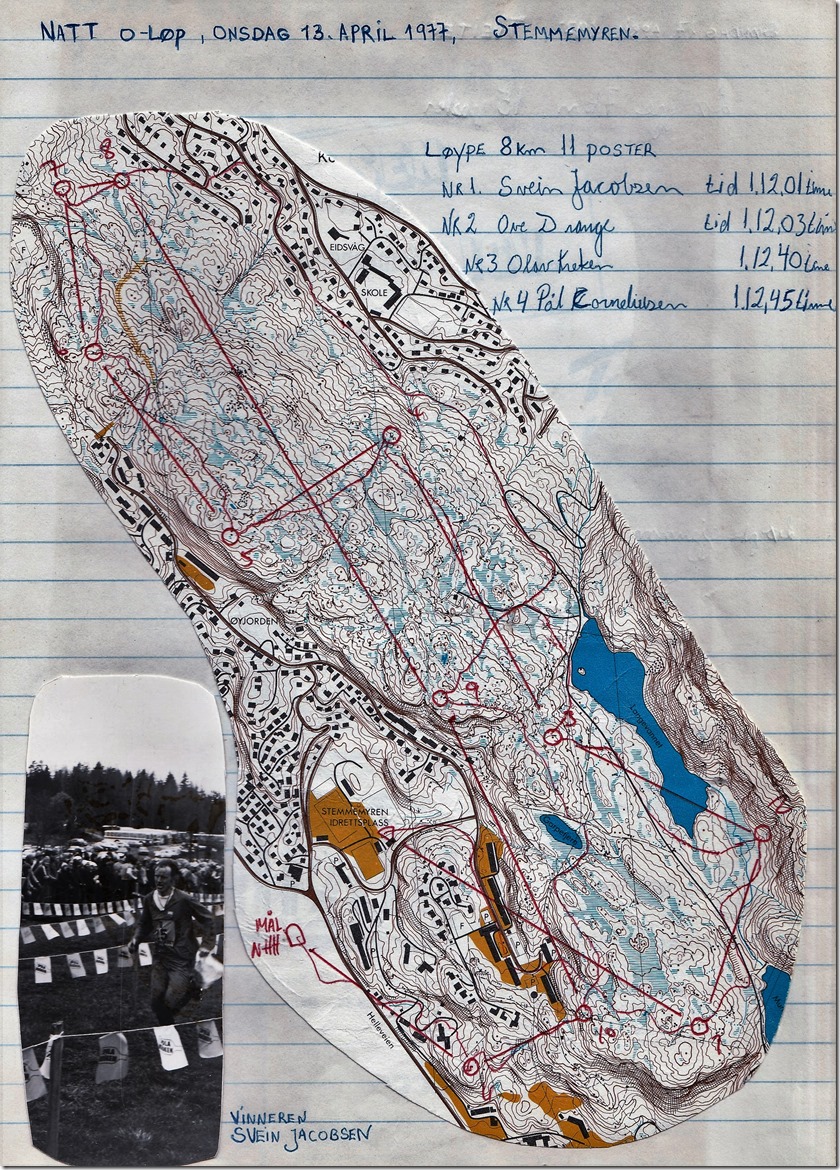 NATT O-LØP, ONSDAG 13. APRIL 1977, STEMMEMYREN.
LØYPE 8 km 11 POSTER
NR 1. Svein Jacobsen tid 1,12,01 time
NR 2 Ove Drange tid 1,12,03 time
NR 3 Olav Kreken 1,12,40 time
NR 4 Pål Corneliusen 1.12,45 time
7
8
EIDSVÅG
SKOLE
6
4
5
ØYJORDEN
9
3
Langevannet
2
STEMMEMYREN
IDRETTSPLASS
MÅL
NHH
Helleveien
10
1
VINNEREN
SVEIN JACOBSEN